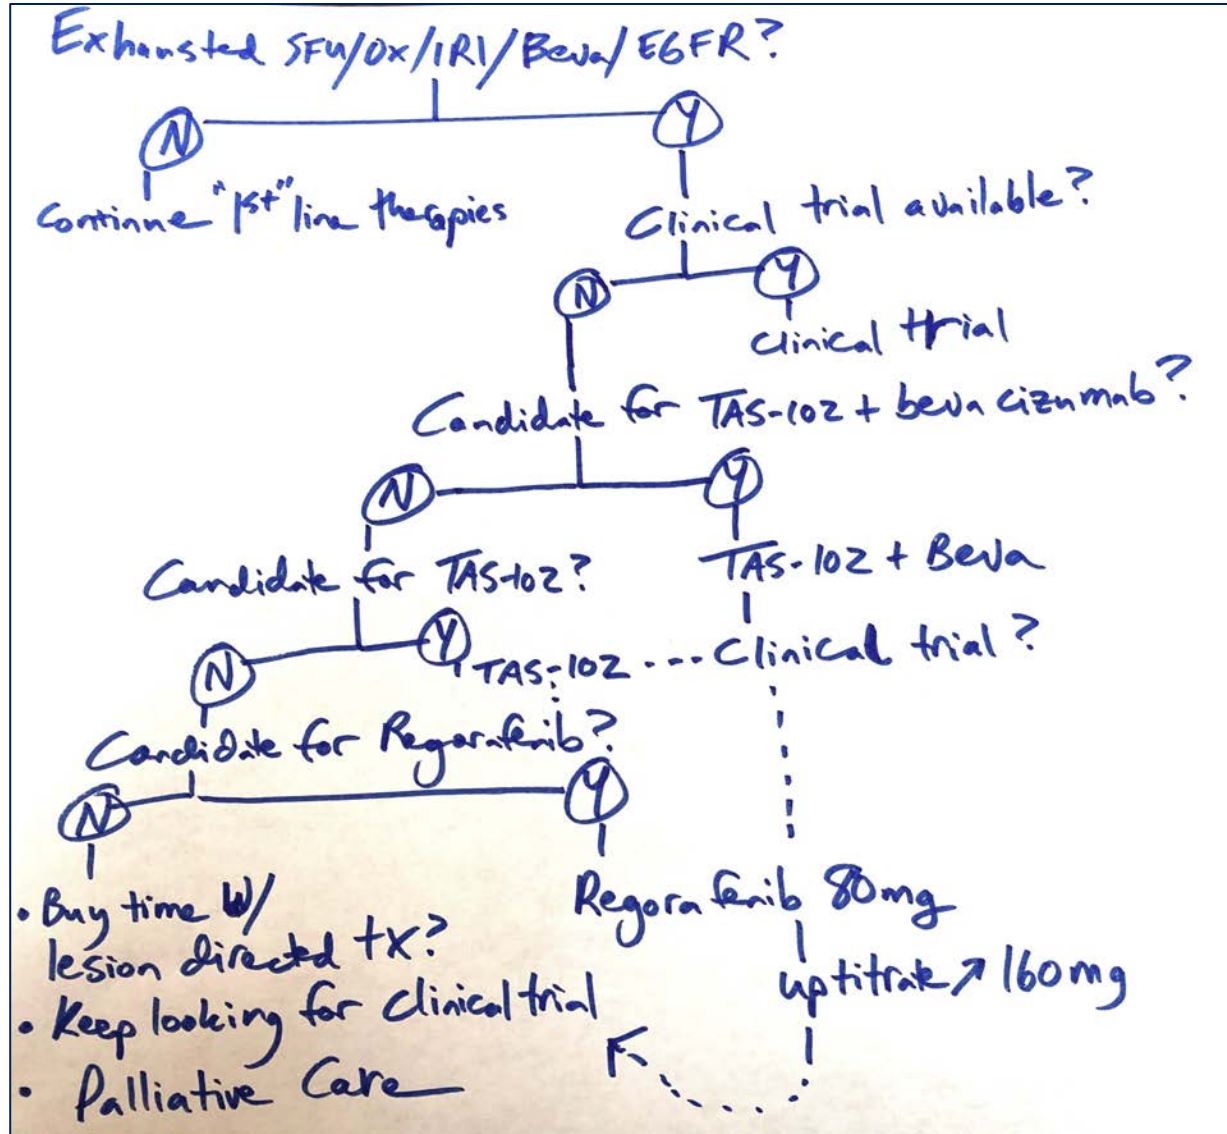 Exhausted 5FU/OX/IRI/Beva/EGFR?
N
Y
Continue "1st" line therapies
Clinical trial available?
N
Y
Clinical trial
Candidate for TAS-102 + bevacizumab?
N
Y
Candidate for TAS-102?
TAS-102 + Beva
N
Y
TAS-102 --- Clinical trial?
Candidate for Regorafenib?
N
Y
• Buy time w/
lesion directed tx?
• Keep looking for clinical trial
• Palliative Care
Regorafenib 80mg
uptitrate ↗ 160mg